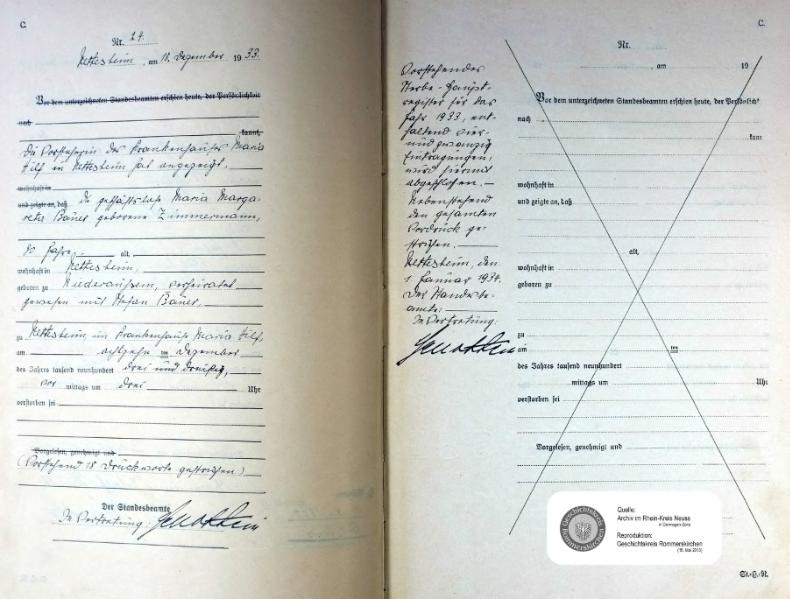 C.
Nr. 24.
Nettesheim, am 18. Dezember 1933.
Vor dem unterzeichneten Standesbeamten erschien heute, der Persönlichkeit
nach
kannt,
die Vorsteherin des Krankenhauses Maria
Hilf in Nettesheim hat angezeigt,
wohnhaft in
und zeigte an, daß die geschäftslose Maria Marga-
reta Bauer geborene Zimmermann,
80 Jahre, alt,
wohnhaft in Nettesheim,
geboren zu Niederaussem, verheiratet
gewesen mit Stefan Bauer,
zu Nettesheim, im Krankenhause Maria Hilf,
am achtzehn ten Dezember
des Jahres tausend neunhundert drei und dreißig,
vor mittags um drei Uhr
verstorben sei
Vorgelesen, genehmigt und
(Vorstehend 18 Druckworte gestrichen)
Der Standesbeamte
In Vertretung:
Vorstehendes
Sterbe-Haupt-
register für das
Jahr 1933, ent-
haltend vier-
undzwanzig
Eintragungen,
wird hiermit
abgeschlossen. —
Nebenstehend
den gesamten
Vordruck ge-
strichen.
Nettesheim, den
1. Januar 1934.
Der Standesbe-
amte:
In Vertretung:
C.
Nr.
am 19
Vor dem unterzeichneten Standesbeamten erschien heute, der Persönlichkeit
nach
kannt
wohnhaft in
und zeigte an, daß
alt,
wohnhaft in
geboren zu
zu
am ten
des Jahres tausend neunhundert
mittags um Uhr
verstorben sei
Vorgelesen, genehmigt und
Geschichtskreis Rommerskirchen
Quelle:
Archiv im Rhein-Kreis Neuss
in Dormagen-Zons
Reproduktion:
Geschichtskreis Rommerskirchen
St.-H.-R.